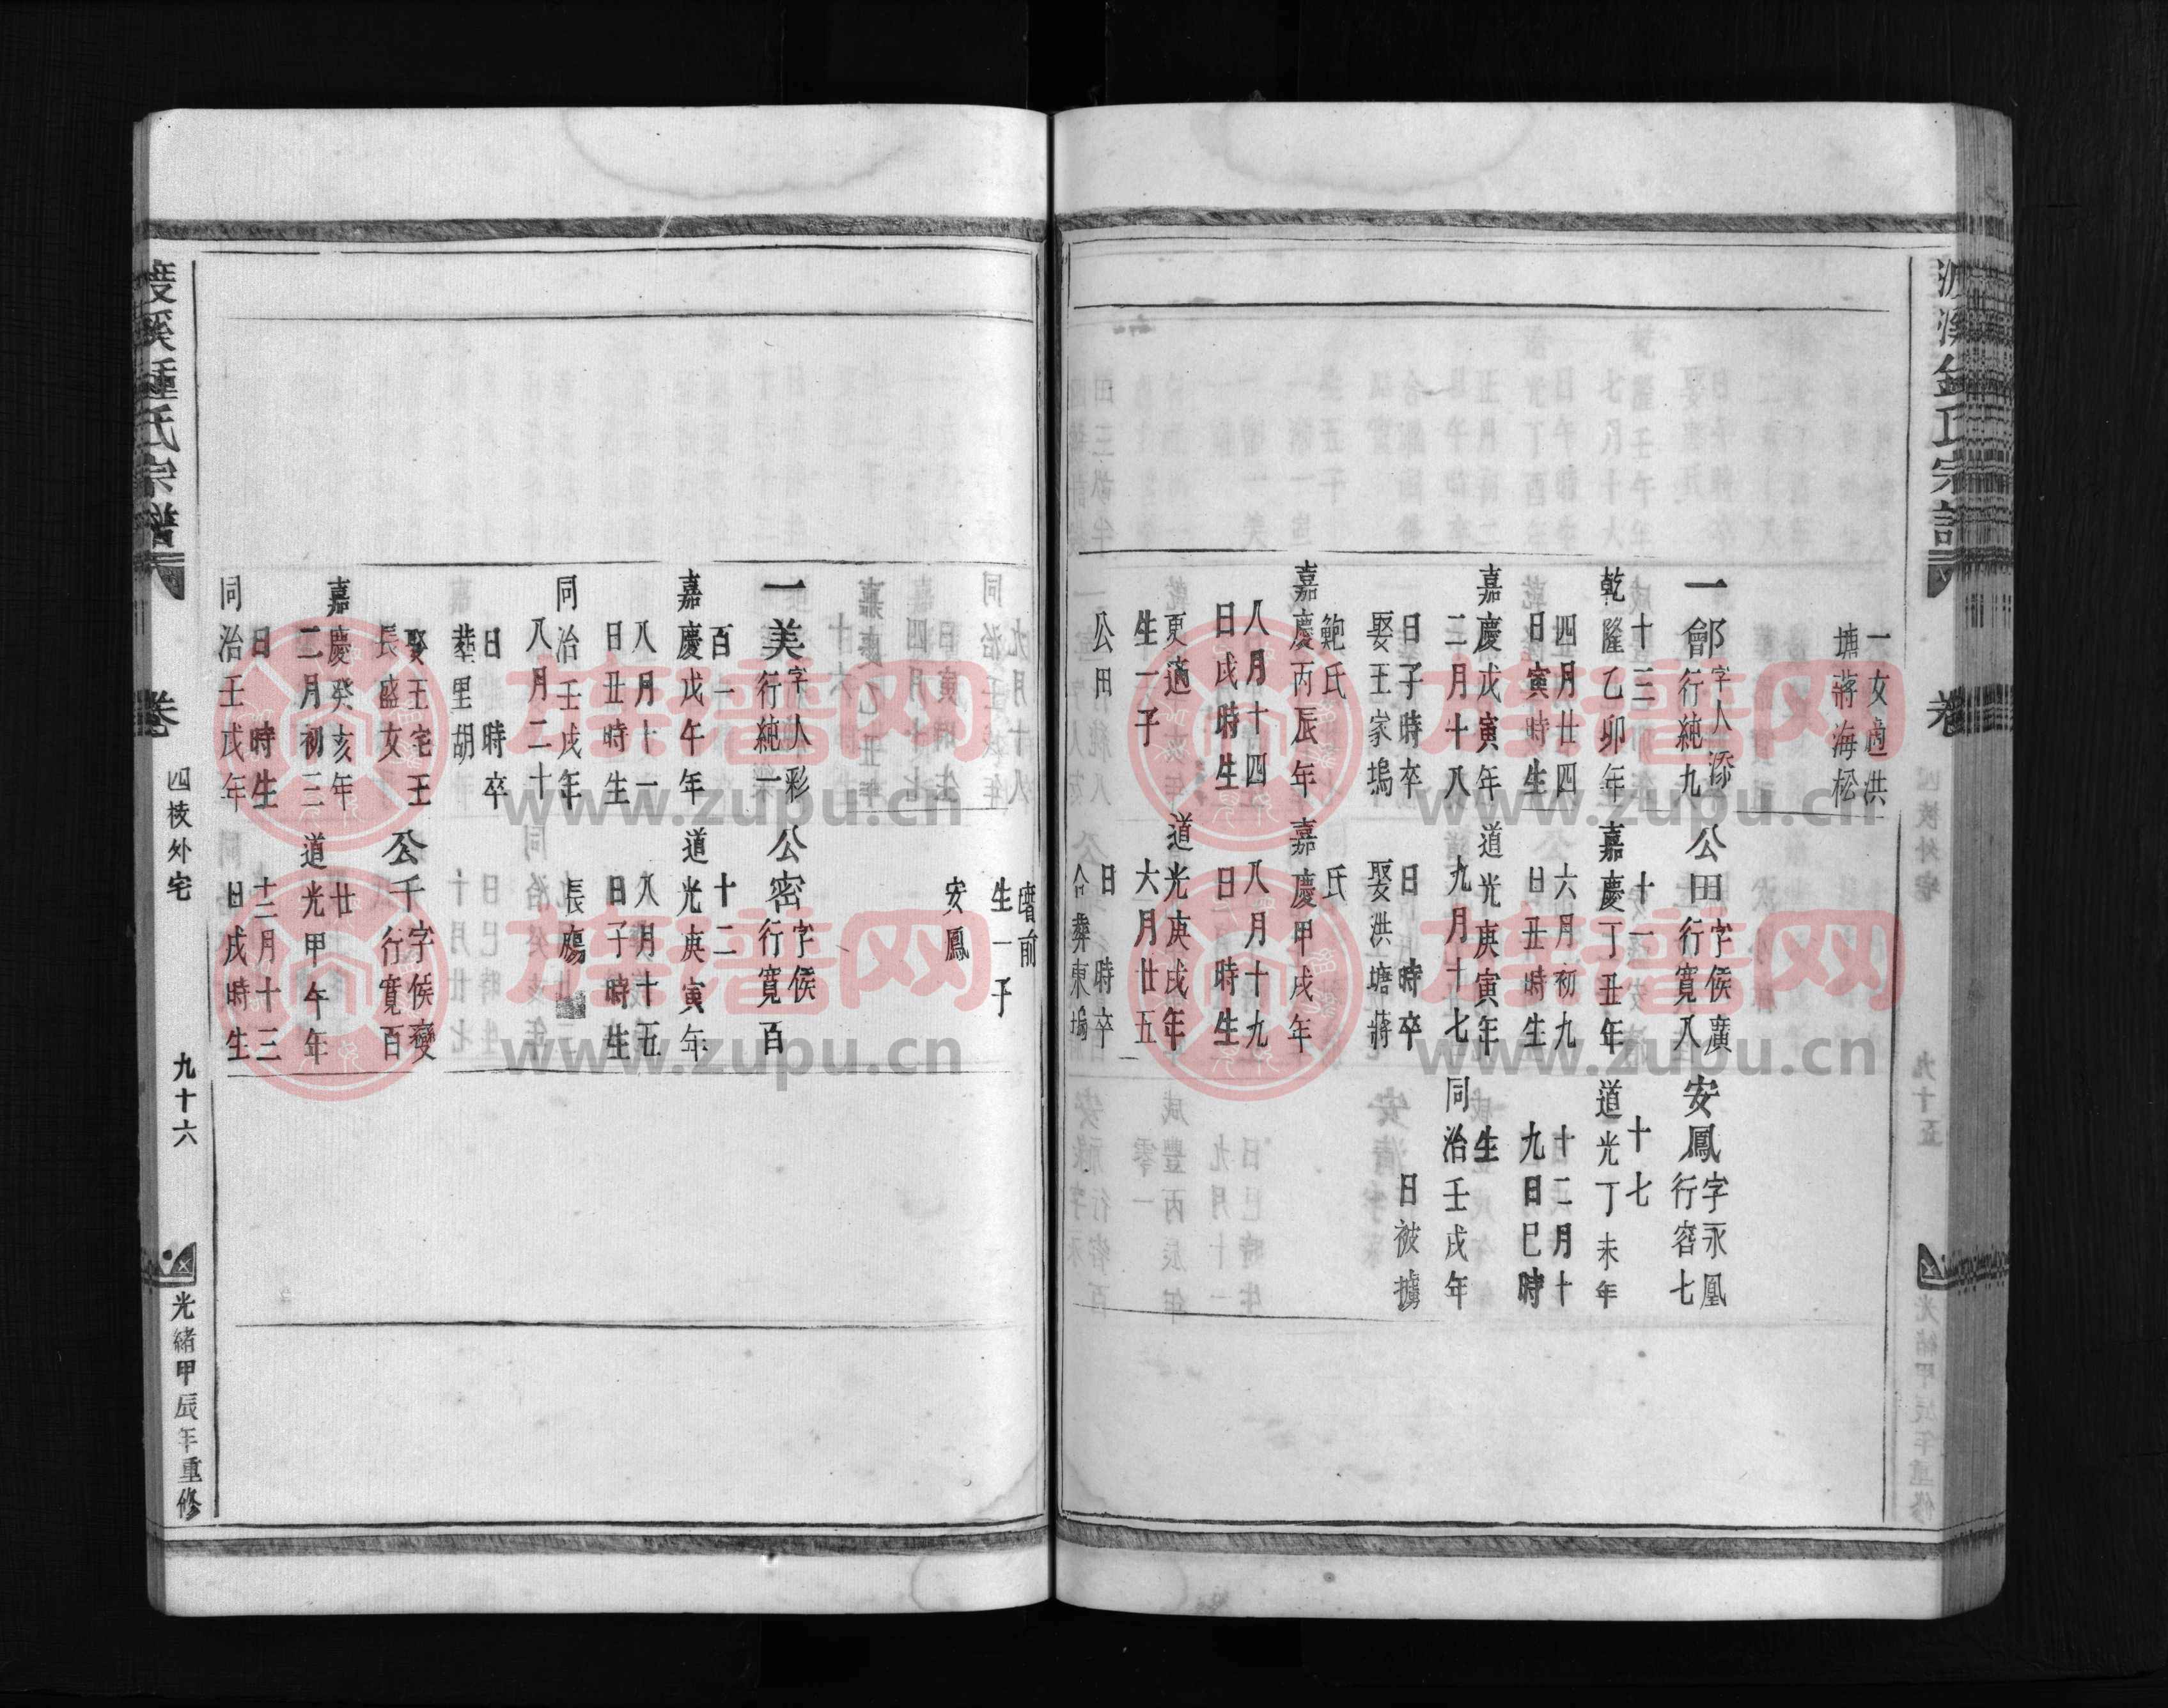 一女適洪
塘蔣海松
一鄮字人添
行純九
十三
乾隆乙卯年
四月廿四
日寅時生
嘉慶戊寅年
二月十八
日子時卒
娶王家塢
鮑氏
嘉慶丙辰年
八月十四
日戌時生
更適
生一子
公田
公田字侯廣
行寬八
十一
嘉慶丁丑年
六月初九
日丑時生
道光庚寅年
九月十七
日時卒
娶洪塘蔣
氏
嘉慶甲戌年
八月十九
日時生
道光庚戌年
六月廿五
日時卒
合葬東塢
安鳳字永凰
行容七
十七
道光丁未年
十二月十
九日巳時
生
同治壬戌年
日被擄
生一子
安鳳
一美字人彩
行純一
百一
嘉慶戊午年
八月十一
日丑時生
同治壬戌年
八月二十
日時卒
葬里胡
公密字侯
行寬百
十二
道光庚寅年
八月十五
日子時生
長殤
娶王宅王
長盛女
嘉慶癸亥年
二月初三
日時生
同治壬戌年
公千字侯變
行寬百
廿
道光甲午年
十二月十三
日戌時生
氏宗譜
卷
四棱外宅
九十六
光緒甲辰年重修
www.zupu.cn
www.zupu.cn
www.zupu.cn
www.zupu.cn